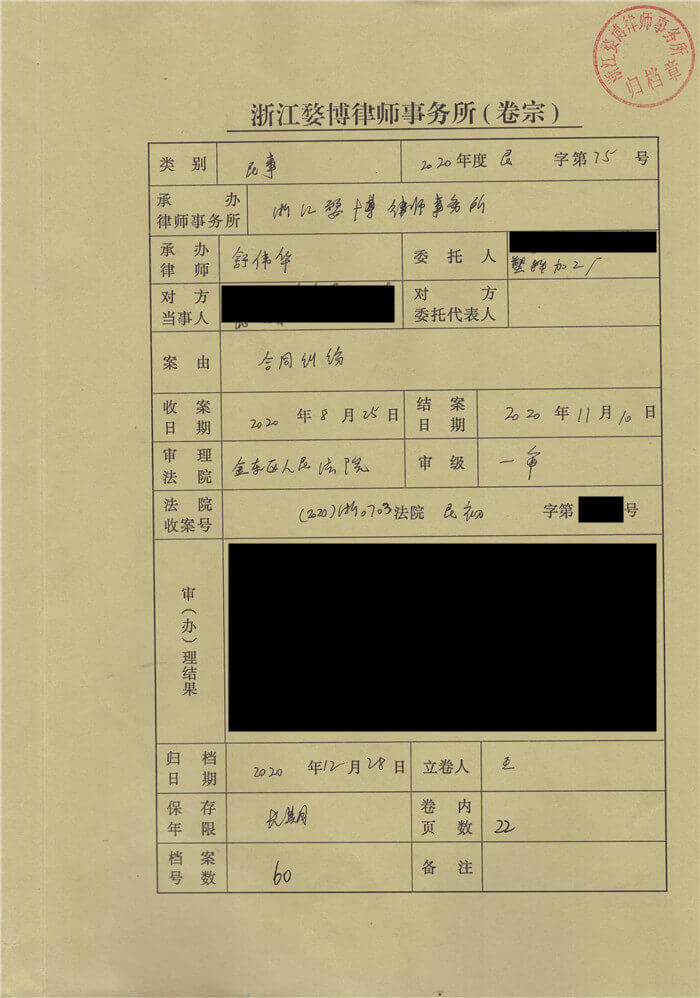 浙江婺博律师事务所
归档章
浙江婺博律师事务所(卷宗)
类别 民事 2020年度 民 字第75号
承办
律师事务所 浙江婺博律师事务所
承办
律师 舒伟华 委托人 塑料加工厂
对方
当事人 对方
委托代表人
案由 合同纠纷
收案
日期 2020年8月25日 结案
日期 2020年11月10日
审理
法院 金东区人民法院 审级 一审
法院
收案号 (2020)浙0703法院 民初 字第 号
审(办)理结果
归档
日期 2020年12月28日 立卷人 王
保存
年限 长期 卷内
页数 22
档案
号数 60 备注